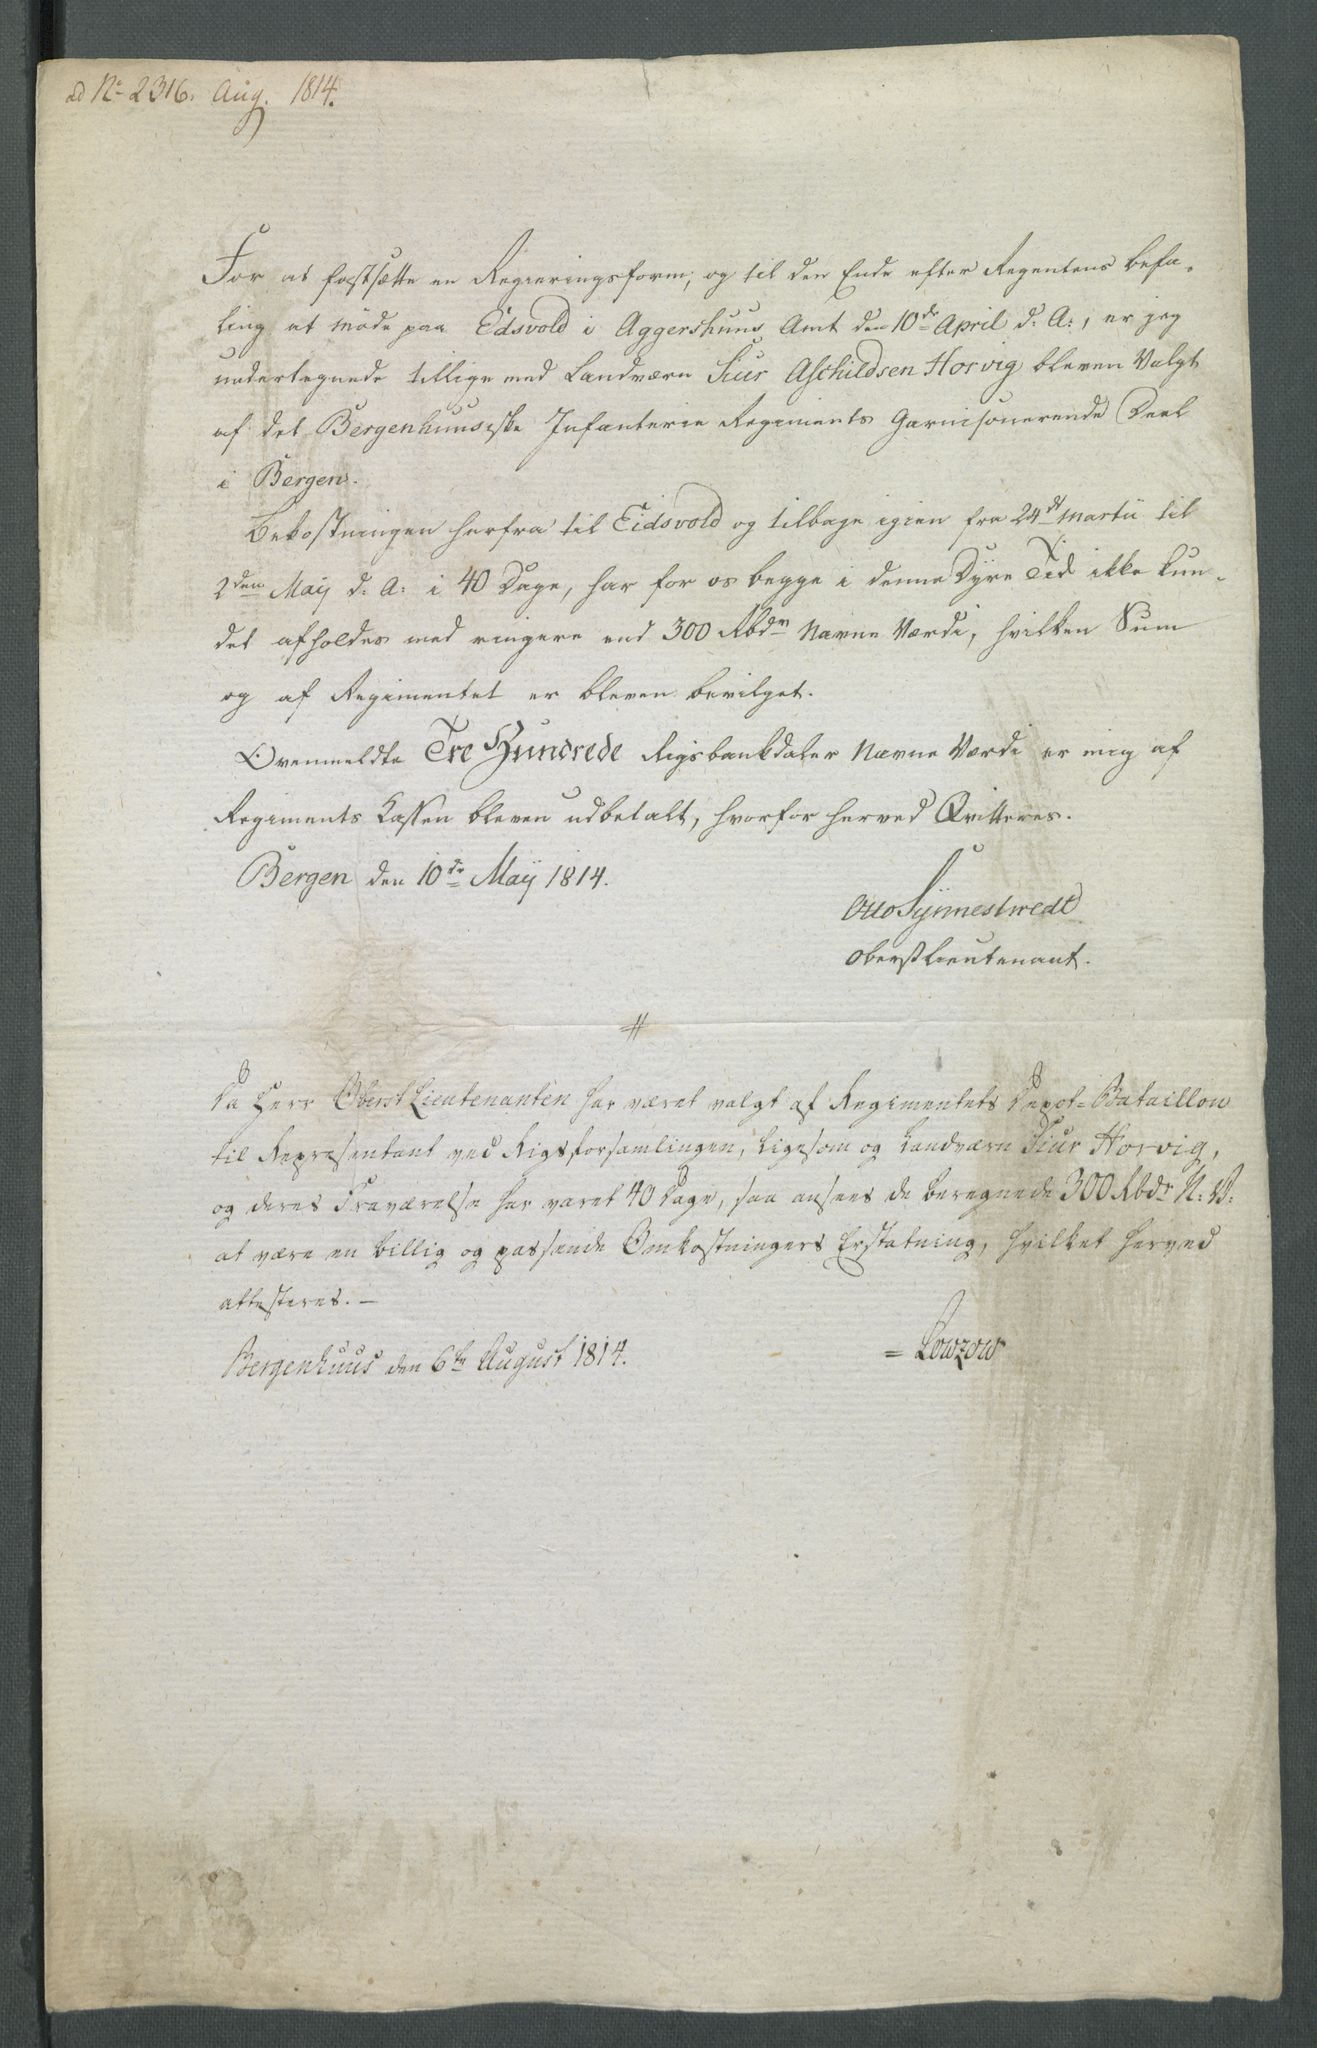 ad No 2316. Aug. 1814.
For at fastsætte en Regieringsform, og til den Ende efter Regentens Befa-
ling at møde paa Edsvold i Aggershuus Amt den 10de April d: A:, er jeg
undertegnede tillige med Landværn Siur Aschildsen Horvig bleven Valgt
af det Bergenhuusiske Infanterie Regiments Garnisonerende Deel
i Bergen.
Bekostningen herfra til Eidsvold og tilbage igien fra 24de Martii til
2den Maÿ d: A: i 40 Dage, har for os begge i denne Dyre Tid ikke kun-
det afholdes med ringere end 300 Rbdr Navne Værdi, hvilken Sum
og af Regimentet er bleven bevilget.
Ovenmeldte Tre Hundrede Rigsbankdaler Navne Værdi er mig af
Regiments Cassen bleven udbetalt, hvorfor herved Qvitteres.
Bergen den 10de Maÿ 1814.
Otto Sÿnnestwedt
Oberstlieutenant.
#
Da Herr OberstLieutenanten har været valgt af Regimentets Depot-Bataillon
til Repræsentant ved Rigsforsamlingen, ligesom og Landværn Siur Horvig,
og deres Fraværelse har varet 40 Dage, saa ansees de beregnede 300 Rbdr N: V:
at være en billig og passende Omkostningers Erstatning, hvilket herved
attesteres. —
Bergenhuus den 6te August 1814.
= Lowzow